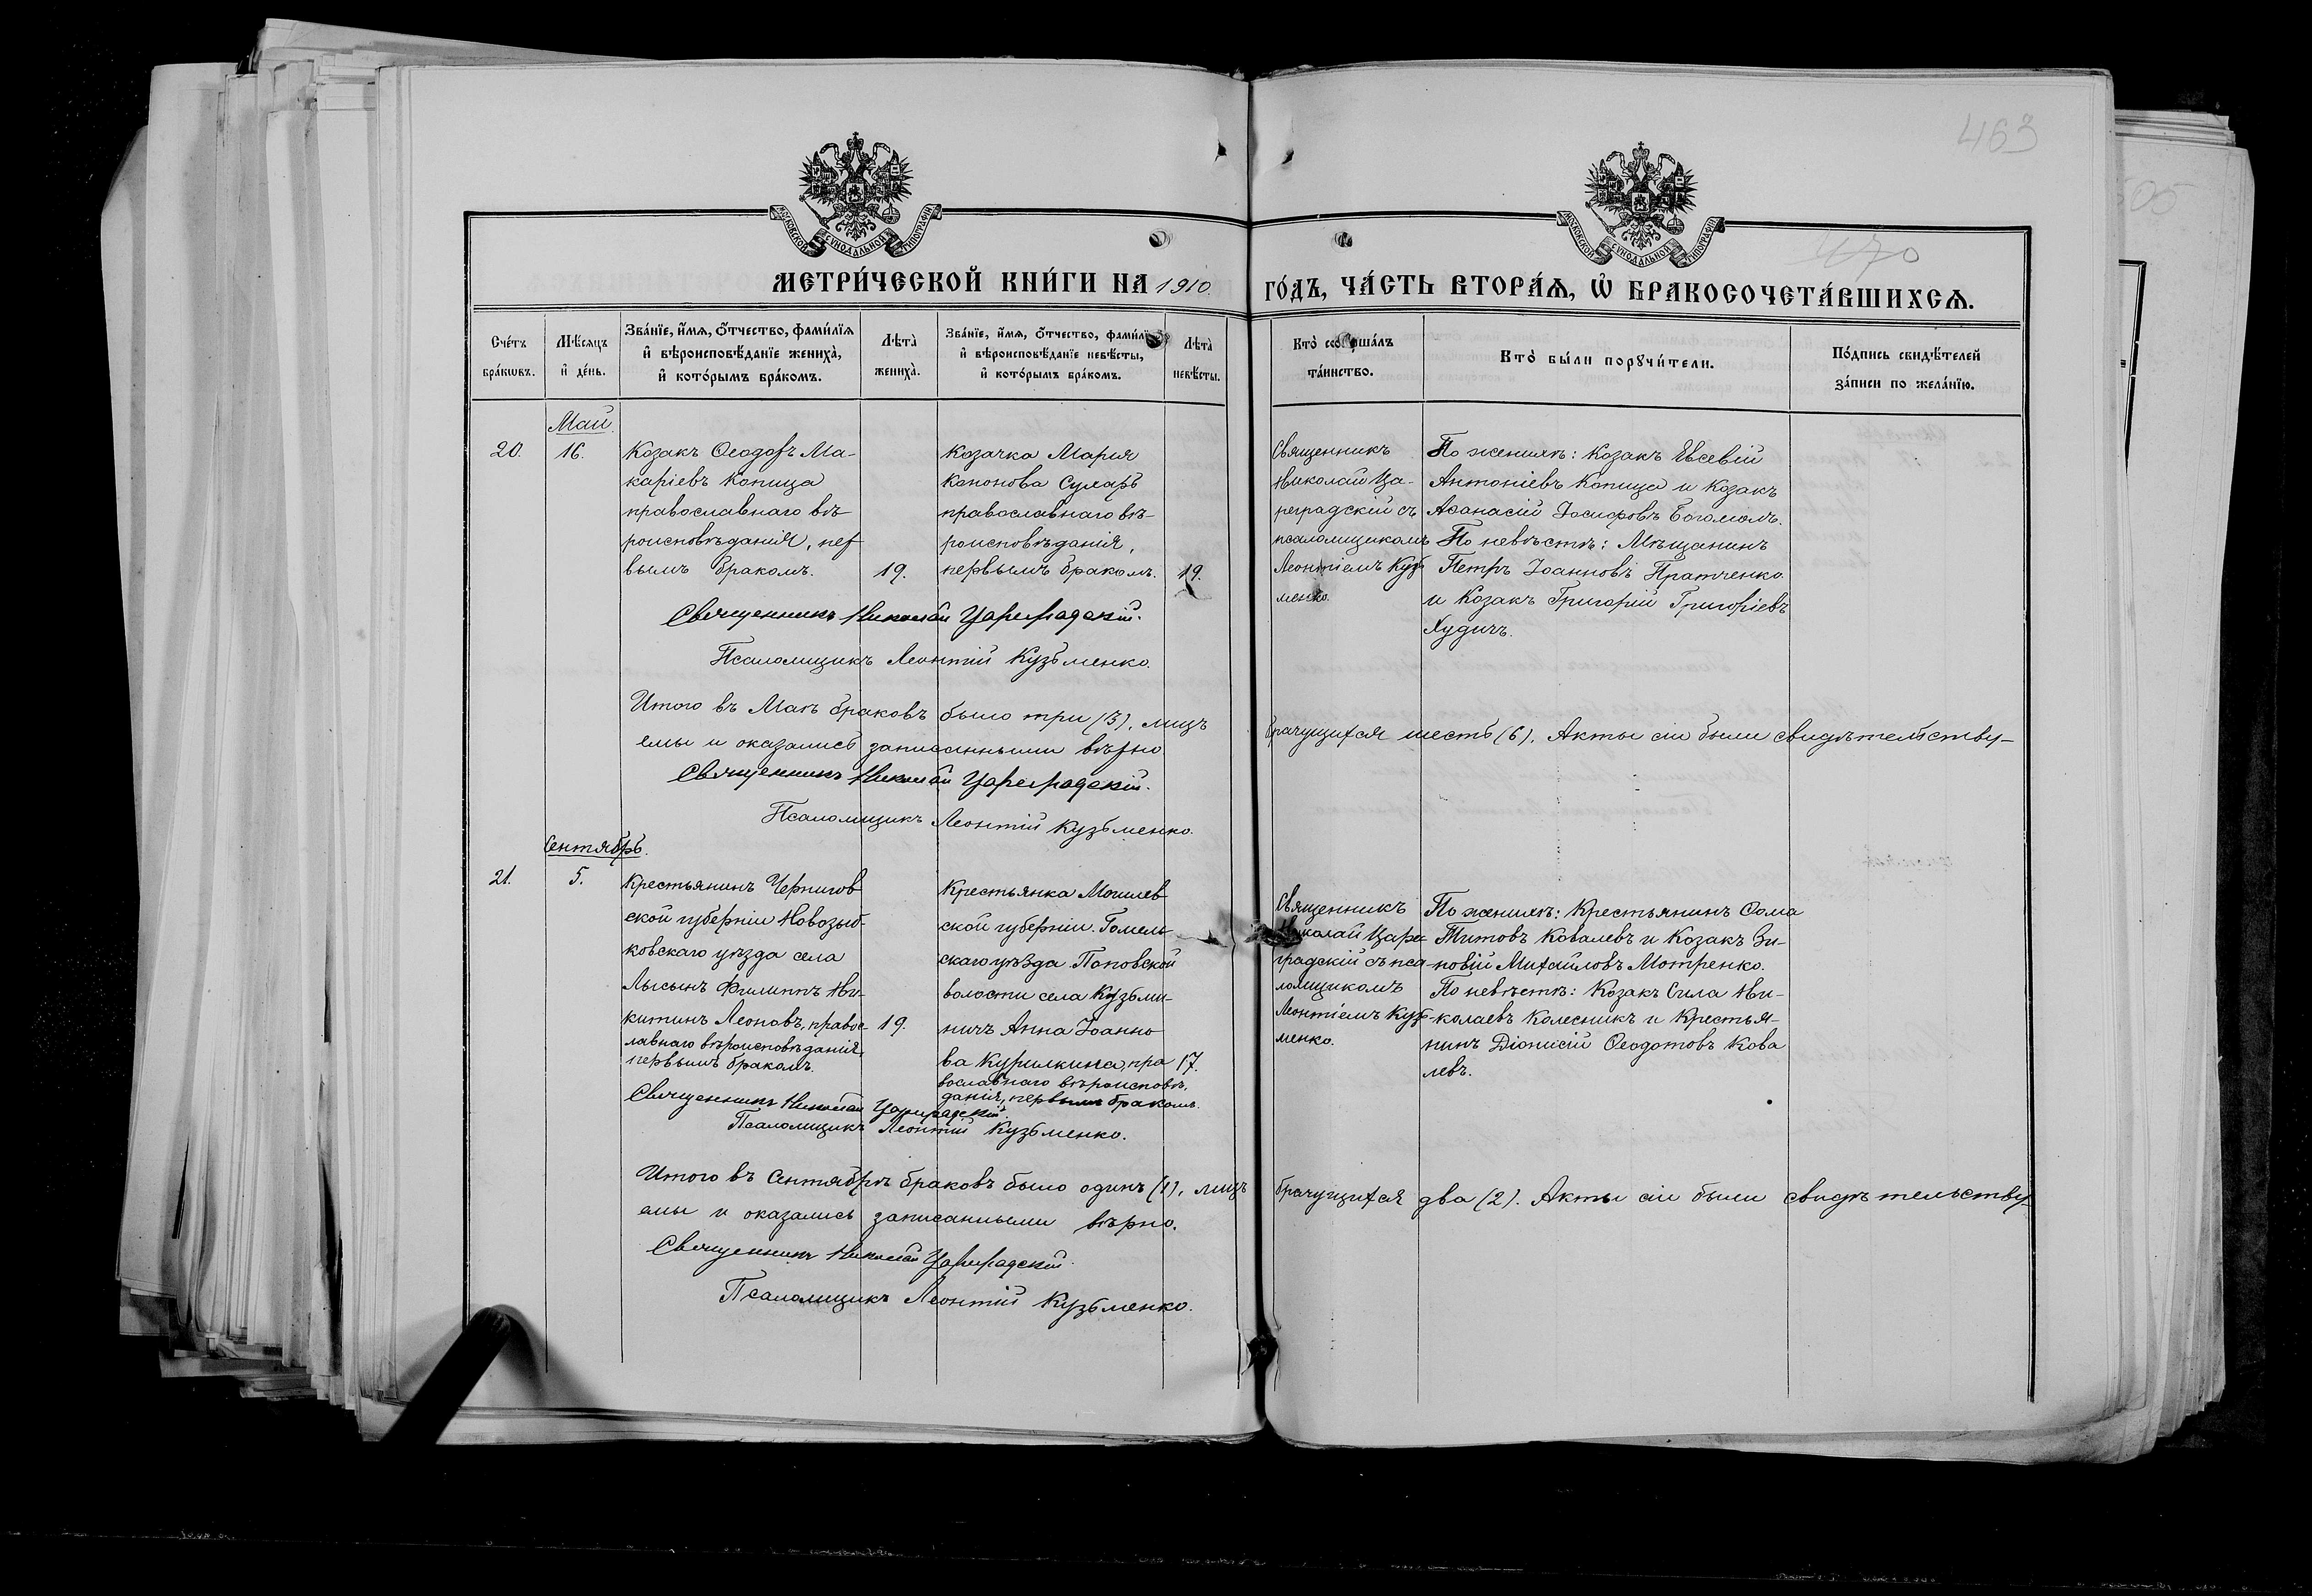 463
505
МОСКОВСКОЙ СѴНОДАЛЬНОЙ ТИПОГРАФІИ
МОСКОВСКОЙ СѴНОДАЛЬНОЙ ТИПОГРАФІИ
470
МЕТРИ́ЧЕСКОЙ КНИ́ГИ НА 1910. ГО́ДЪ, ЧА́СТЬ ВТОРА́Ѧ, Ѡ҆ БРАКОСОЧЕТА́ВШИХСѦ.
Сче́тъ
бра́кѡвъ.
Мѣ́сяцъ
и҆ де́нь.
Зва́нїе, и҆́мѧ, ѻ҆́тчество, фами́лїѧ
и҆ вѣроисповѣ́данїе жениха̀,
и҆ кото́рымъ бра́комъ.
Лѣта̀
жениха̀.
Зва́нїе, и҆́мѧ, ѻ҆́тчество, фами́лї
и҆ вѣроисповѣ́данїе невѣ́сты,
и҆ кото́рымъ бра́комъ.
Лѣта̀
невѣ́сты.
Кто̀ соверша́лъ
та́инство.
Кто̀ бы́ли порꙋчи́тели.
По́дпись свидѣ́телей
за́писи по жела́нїю.
Май.
20.
16.
Козакъ Ѳеодоръ Ма-
каріевъ Копица
православнаго вѣ-
роисповѣданія, пер
вымъ бракомъ.
19.
Козачка Марія
Кононова Суларъ
православнаго вѣ-
роисповѣданія,
первымъ бракомъ.
19.
Священникъ
Николай Ца-
реградскій съ
псаломщикомъ
Леонтіемъ Кузь
менко.
По женихѣ: Козакъ Евсевій
Антоніевъ Копица и Козакъ
Аѳанасій Іосифовъ Богомолъ.
По невѣстѣ: Мѣщанинъ
Петръ Іоанновъ Пратченко
и Козакъ Григорій Григоріевъ
Худичъ.
Священникъ Николай Цареградскій.
Псаломщикъ Леонтій Кузьменко.
Итого въ Маѣ браковъ было три (3), лицъ брачущихся шесть (6). Акты сіи были свидѣтельству-
емы и оказались записанными вѣрно
Священникъ Николай Цареградскій.
Псаломщикъ Леонтій Кузьменко.
Сентябрь.
21.
5.
Крестьянинъ Чернигов
ской губерніи Новозыб-
ковскаго уѣзда села
Лысыхъ Филиппъ Ни-
китинъ Леоновъ, правос-
лавнаго вѣроисповѣданія,
первымъ бракомъ.
19.
Крестьянка Могилев
ской губерніи Гомель
скаго уѣзда Поповской
волости села Кузьми-
ничъ Анна Іоанно
ва Курилкина, пра
вославнаго вѣроисповѣ.
данія, первымъ бракомъ.
17.
Священникъ
Николай Царе
градскій съ пса
ломщикомъ
Леонтіемъ Кузь
менко.
По женихѣ: Крестьянинъ Ѳома
Титовъ Ковалевъ и Козакъ Зи-
новій Михайловъ Мотренко.
По невѣстѣ: Козакъ Сила Ни-
колаевъ Колесникъ и Крестья-
нинъ Діонисій Ѳеодотовъ Кова
левъ.
Священникъ Николай Цареградскій.
Псаломщикъ Леонтій Кузьменко.
Итого въ Сентябрѣ браковъ было одинъ (1), лицъ брачущихся два (2). Акты сіи были свидѣтельству-
емы и оказались записанными вѣрно.
Священникъ Николай Цареградскій.
Псаломщикъ Леонтій Кузьменко.